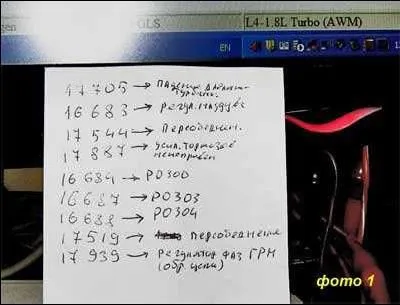 GLS
L4-1.8L Turbo (AWM)
EN
17705 → Падение давлен-
турбины.
16683 → Регул. наддува
17544 → Переобеднен.
17887 → усил. тормозов
неисправен
16684 → P0300
16687 → P0303
16688 → P0304
17519 → переобеднение
17939 → Регулятор фаз ГРМ
(обр. цепи)
фото 1